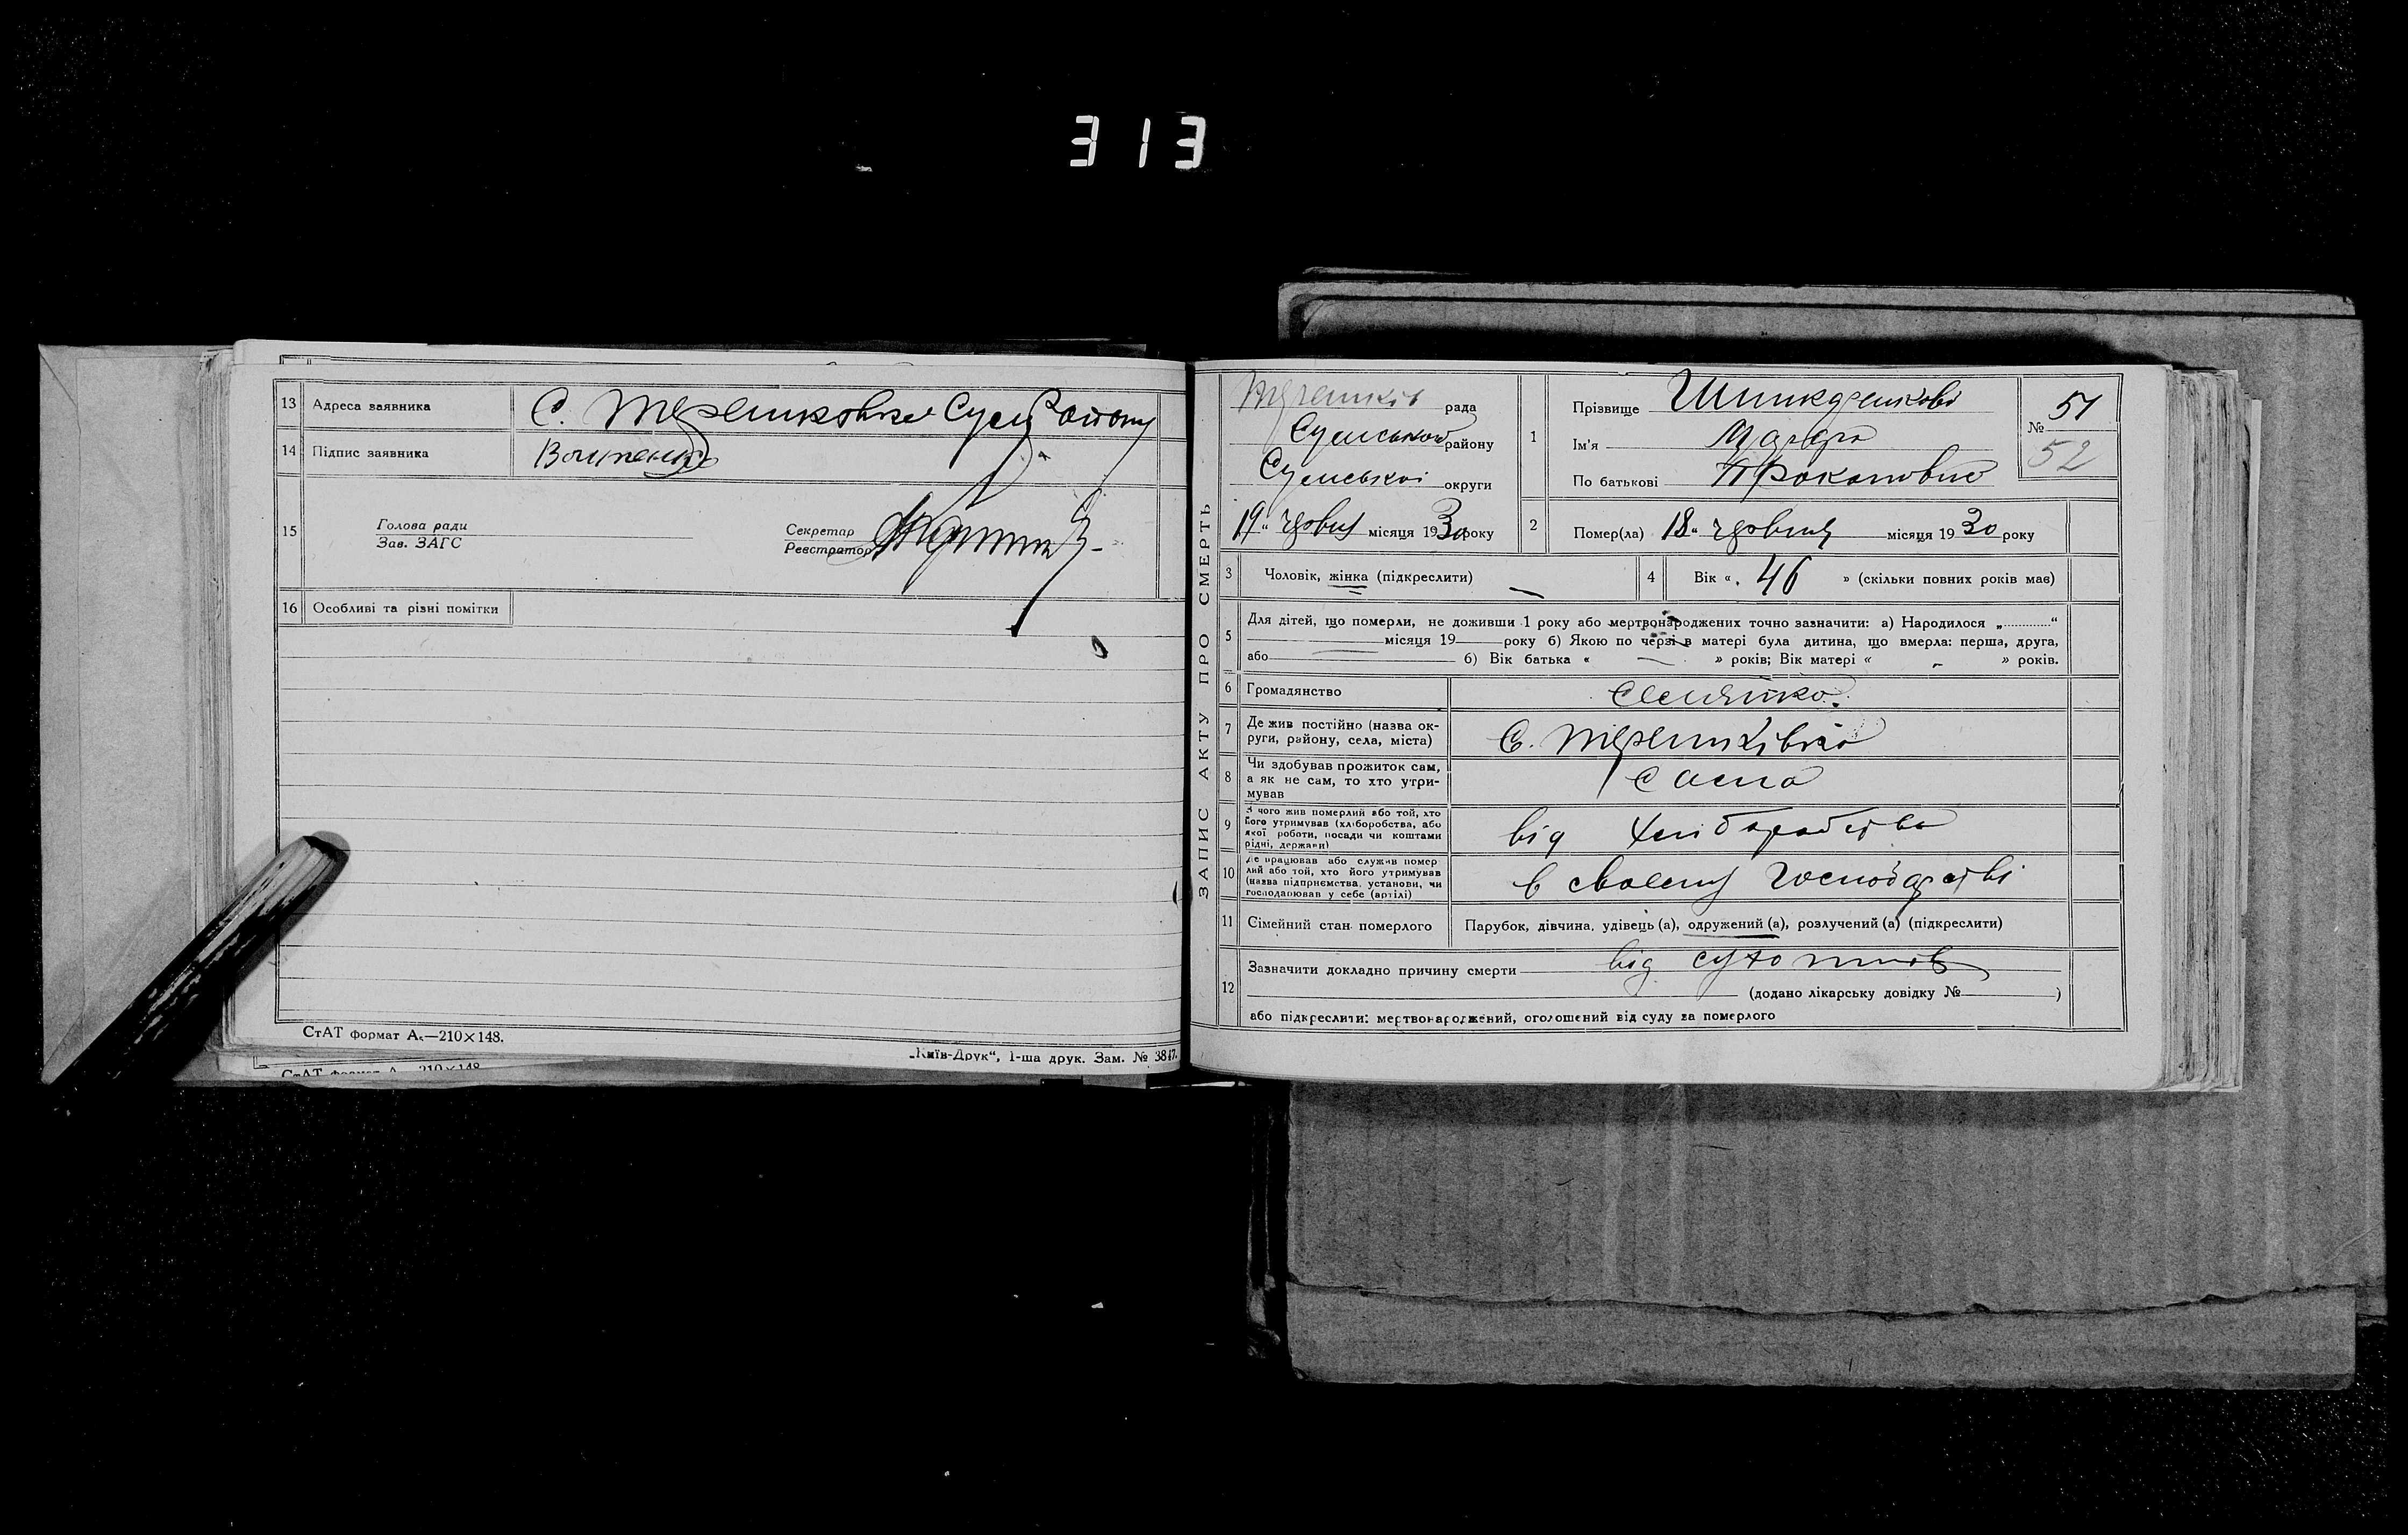 313
13 Адреса заявника С. Терешковка Сум Району
14 Підпис заявника
15 Голова ради
Зав. ЗАГС
Секретар
Реєстратор
16 Особливі та різні помітки
СтАТ формат А₅—210×148.
„Київ-Друк“, 1-ша друк. Зам. № 3847.
СтАТ формат А 210×148
ЗАПИС АКТУ ПРО СМЕРТЬ
Терешків рада
Сумського району
Сумської округи
19 „ червня місяця 1930 року
1 Прізвище
Ім'я
По батькові Прокоповна
№ 51
52
2 Помер(ла) 18 „ червня місяця 1930 року
3 Чоловік, жінка (підкреслити)
4 Вік « 46 » (скільки повних років має)
5 Для дітей, що померли, не доживши 1 року або мертвонароджених точно зазначити: а) Народилося „............“
місяця 19 року б) Якою по черзі в матері була дитина, що вмерла: перша, друга,
або б) Вік батька « » років; Вік матері « » років.
6 Громадянство селянка.
7 Де жив постійно (назва ок-
руги, району, села, міста) С. Терешківка
8 Чи здобував прожиток сам,
а як не сам, то хто утри-
мував сама
9 З чого жив померлий або той, хто
його утримував (хліборобства, або
якої роботи, посади чи коштами
рідні, держави) від хліборобства
10 Де працював або служив помер
лий або той, хто його утримував
(назва підприємства, установи, чи
господарював у себе (артілі) в своєму господарстві
11 Сімейний стан померлого Парубок, дівчина, удівець (а), одружений (а), розлучений (а) (підкреслити)
12 Зазначити докладно причину смерти від сухот
(додано лікарську довідку № )
або підкреслити: мертвонароджений, оголошений від суду за померлого